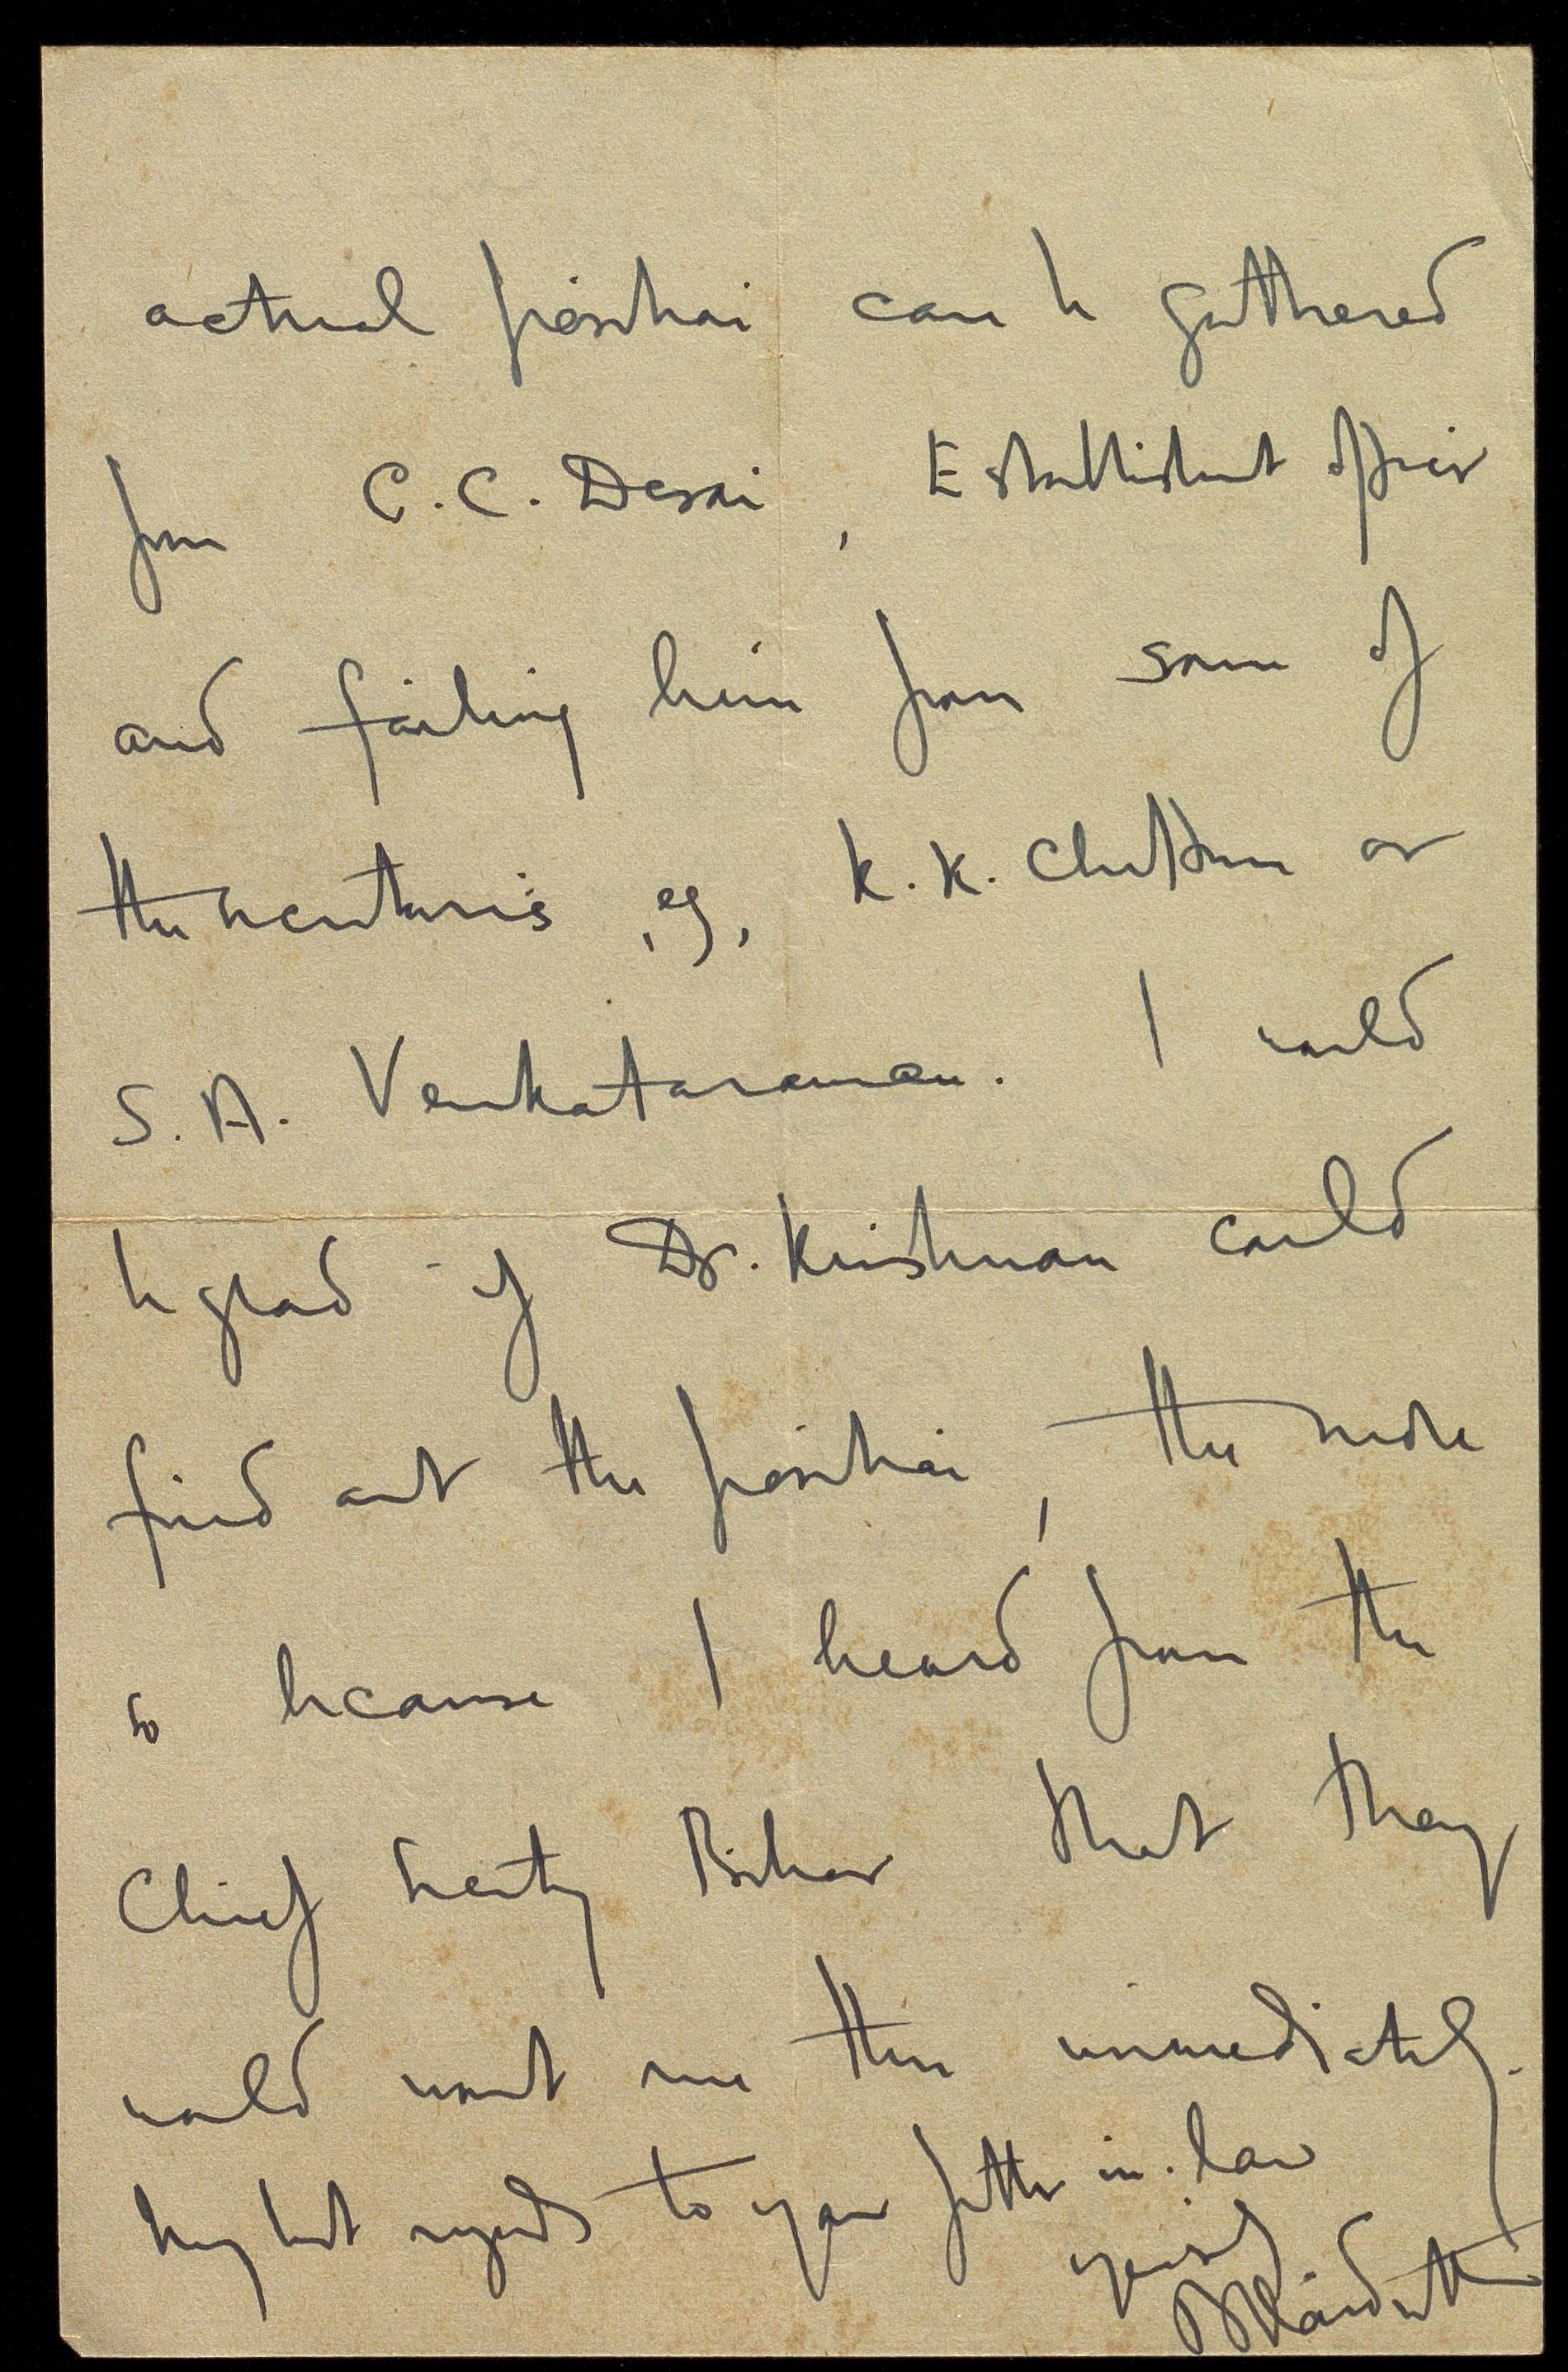 actual position can be gathered
from C.C. Desai, Establishment officer
and failing him from some of
the secretaries, eg, K.K. Chettur or
S.A. Venkataraman. I would
be glad if Dr. Krishnan could
find out the position, the more
so because I heard from the
Chief Secretary Bihar that they
would want me there immediately.
My best regards to your father in-law
yours